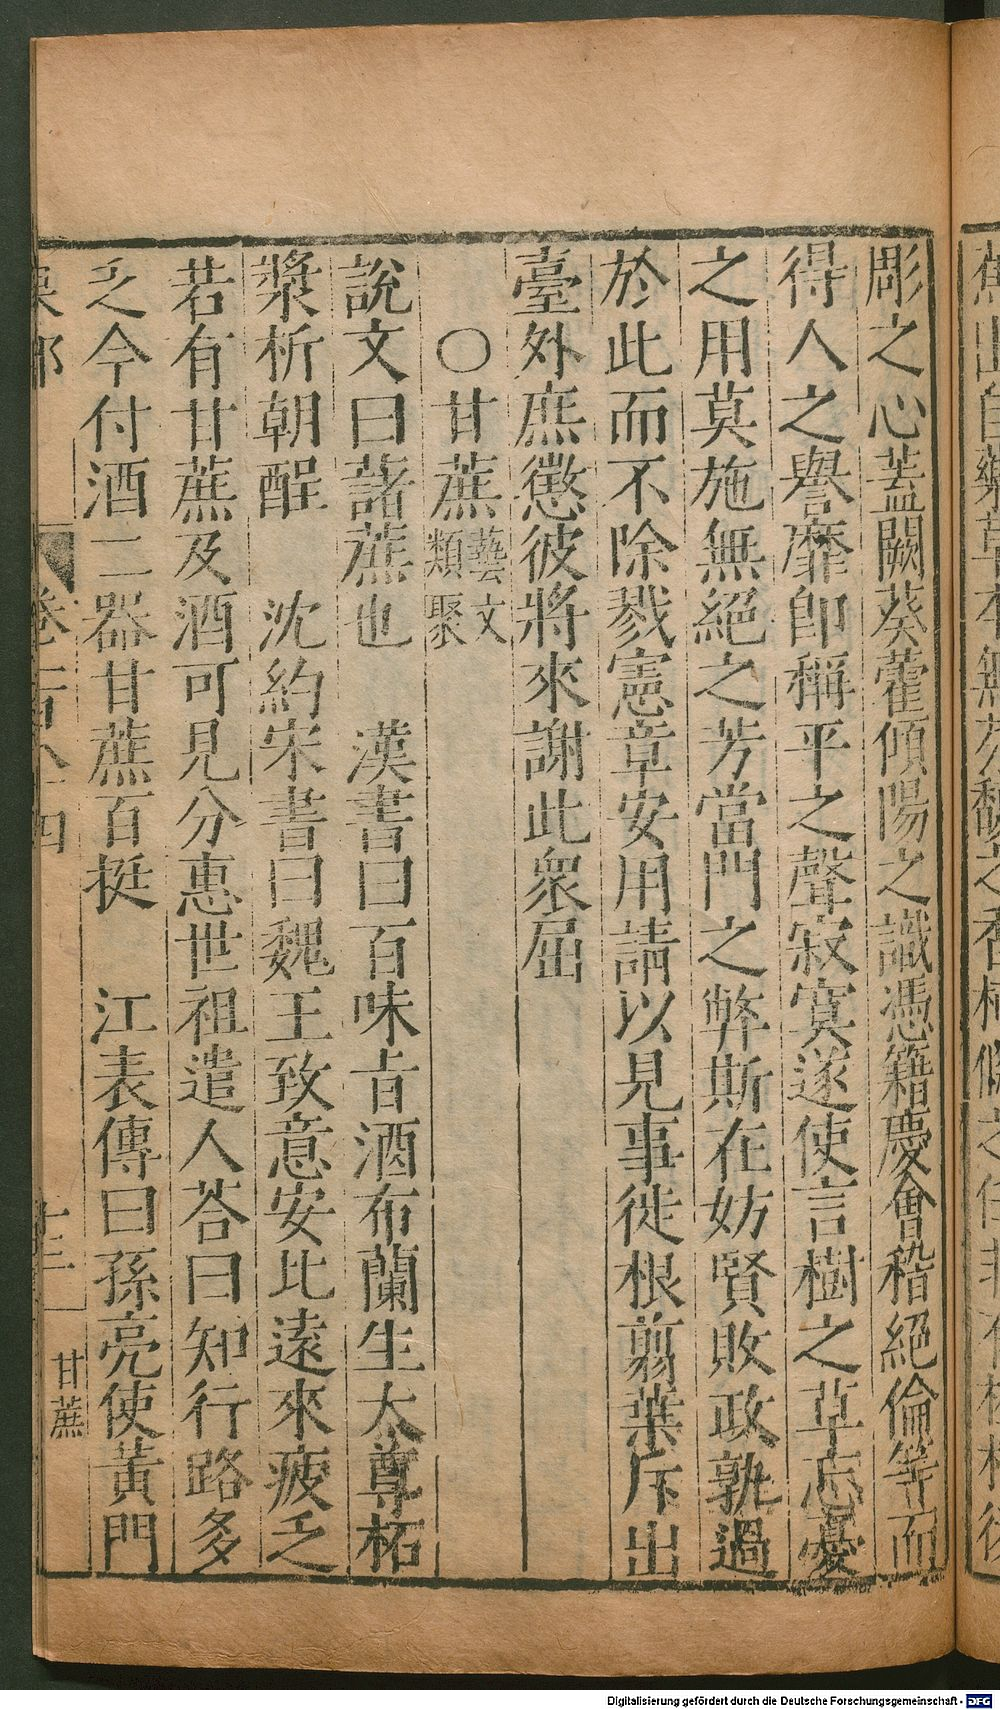 彫之心蓋闕葵藿傾陽之識憑籍慶會稽絕倫等而
得人之譽靡卽稱平之聲寂寞遂使言樹之草忘憂
之用莫施無絕之芳當門之弊斯在妨賢敗政孰過
於此而不除戮憲章安用請以見事徙根翦葉斥出
臺外庶懲彼將來謝此衆屈
○甘蔗藝文類聚
說文曰藷蔗也　漢書曰百味旨酒布蘭生太尊柘
漿析朝酲　沈約宋書曰魏王致意安比遠來疲乏
若有甘蔗及酒可見分惠世祖遣人荅曰知行路多
乏今付酒二器甘蔗百挺　江表傳曰孫亮使黃門
卷一百八十四
十三
甘蔗
Digitalisierung gefördert durch die Deutsche Forschungsgemeinschaft - DFG